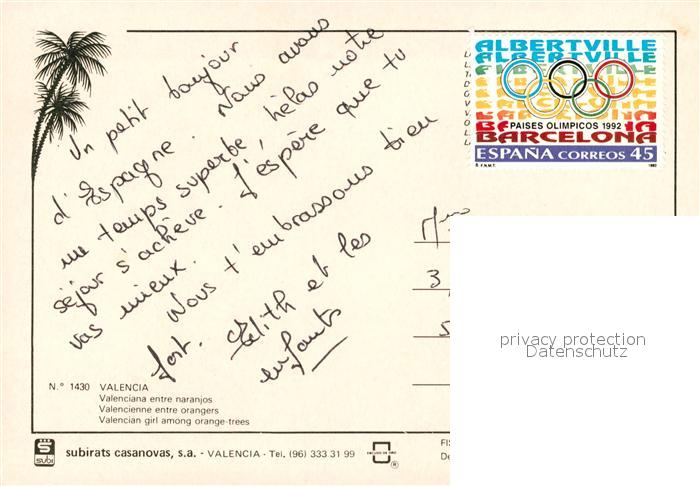 Un petit bonjour
d'Espagne. Nous avons
un temps superbe, hélas notre
séjour s'achève. J'espère que tu
vas mieux.
Nous t'embrassons bien
fort. Edith et les
enfants
ALBERTVILLE
ALBERTVILLE
ALBERTVILLE
PAISES OLIMPICOS 1992
BARCELONA
BARCELONA
ESPAÑA CORREOS 45
F.N.M.T. 1992
Mme
3,
5
privacy protection
Datenschutz
N.° 1430 VALENCIA
Valenciana entre naranjos
Valencienne entre orangers
Valencian girl among orange-trees
subi
subirats casanovas, s.a. - VALENCIA - Tel. (96) 333 31 99
®
FIS
De